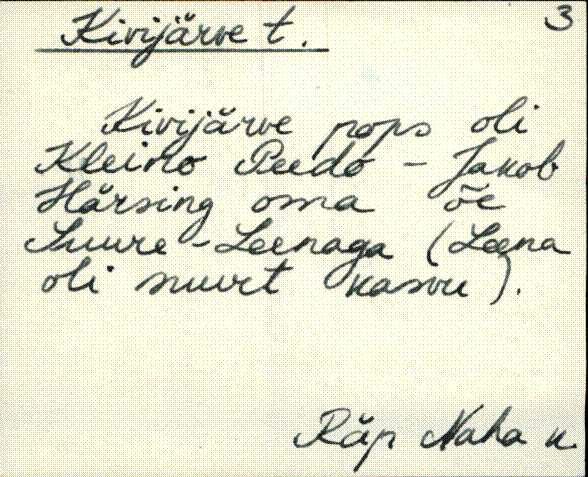 3
Kivijärve t.
Kivijärve pops oli
Kleino Peedo - Jakob
Härsing oma õe
Suure-Leenaga (Leena
oli suurt kasvu).
Räp Naha k.